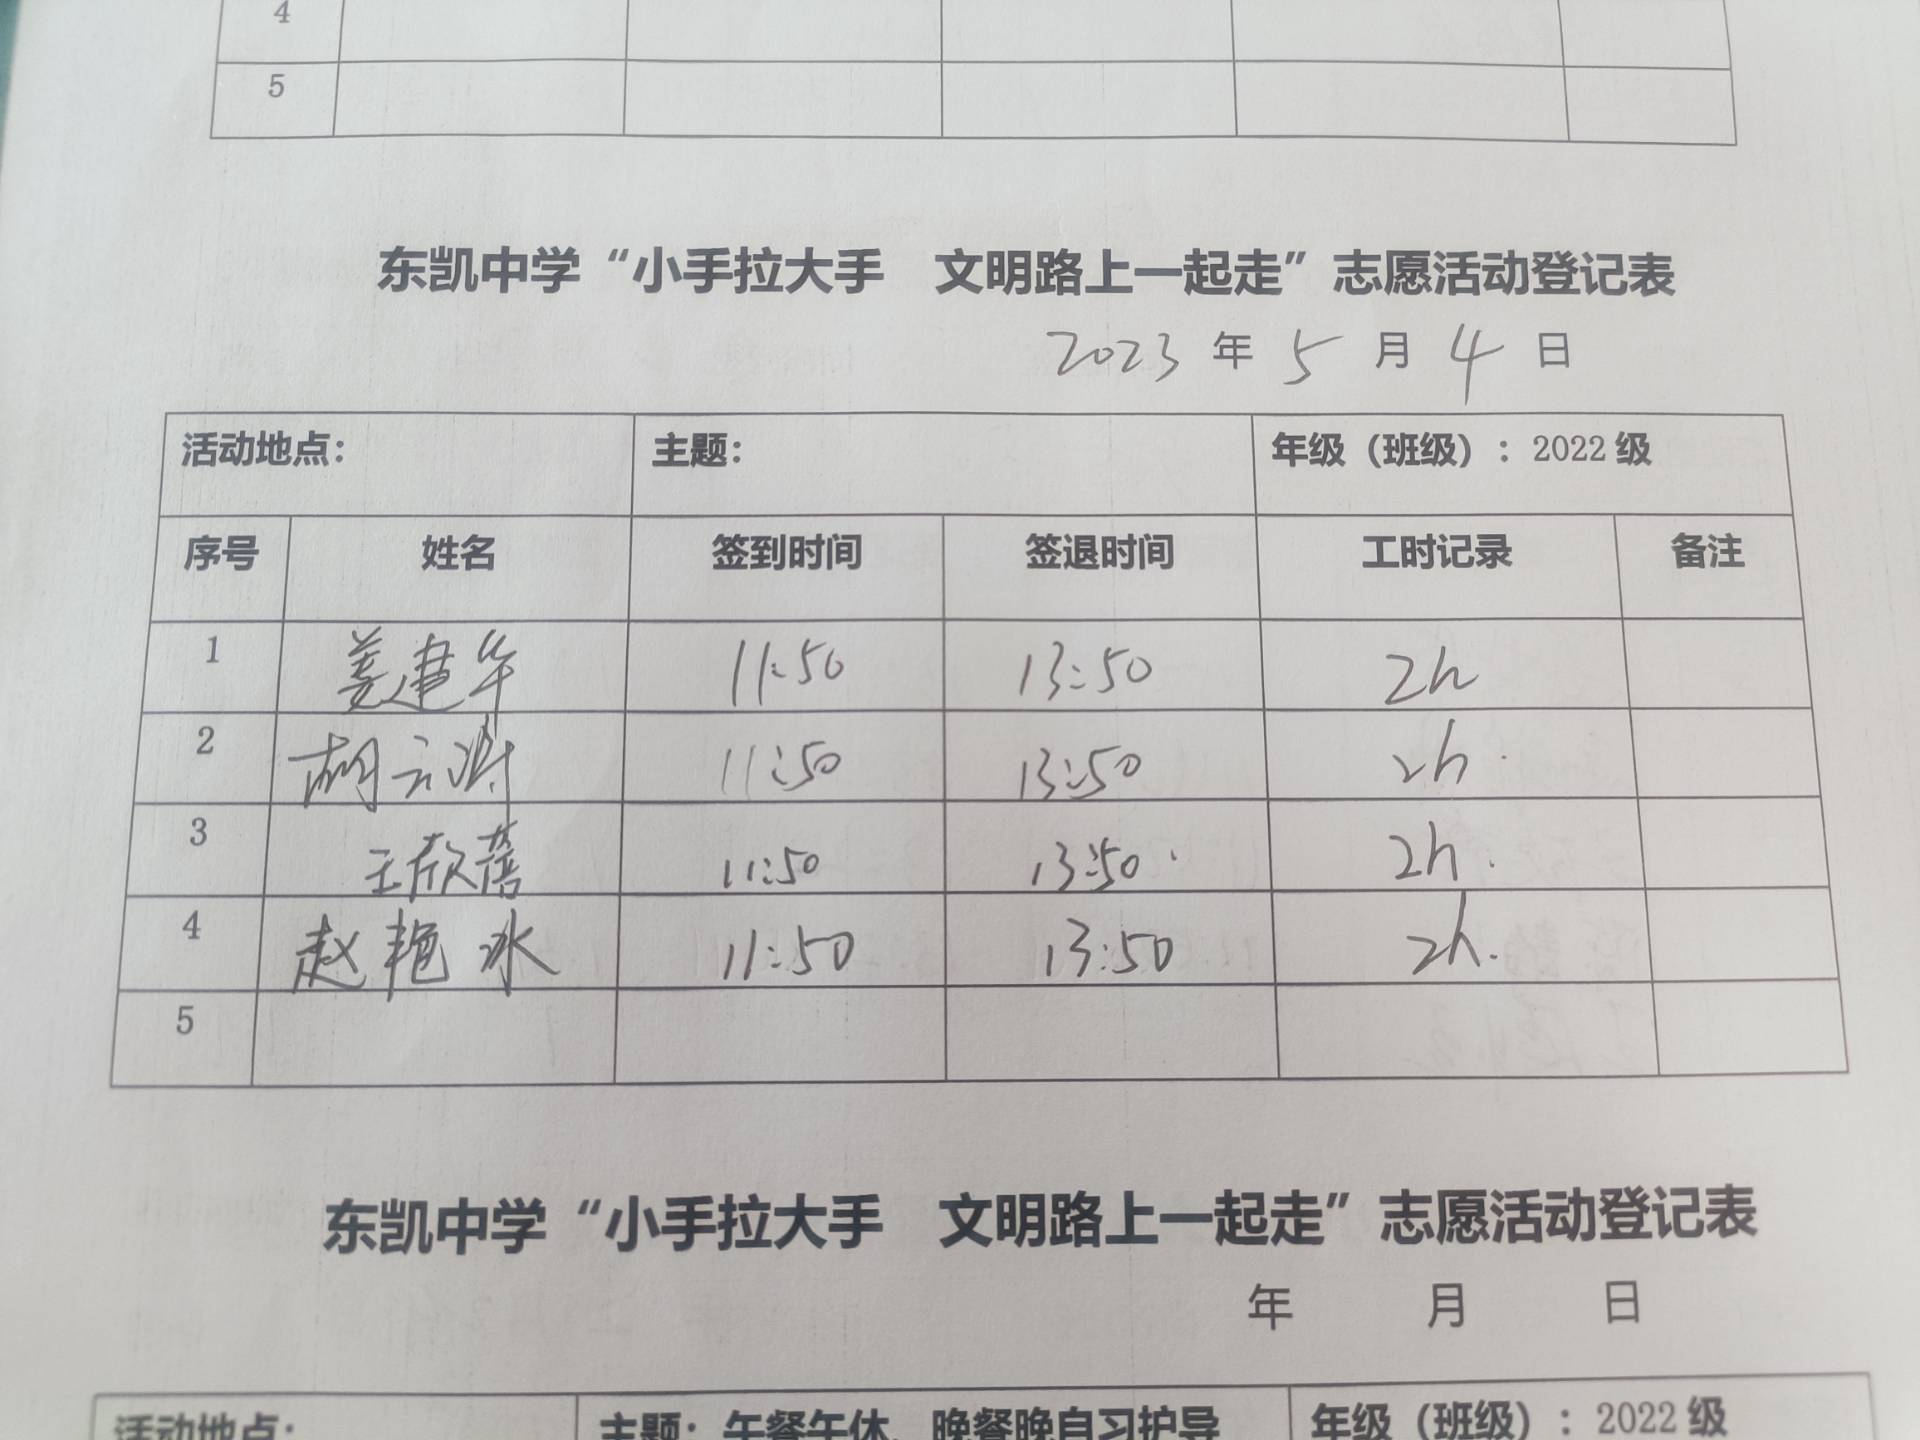 4
5
东凯中学“小手拉大手 文明路上一起走”志愿活动登记表
2023 年 5 月 4 日
活动地点： 主题： 年级（班级）：2022 级
序号 姓名 签到时间 签退时间 工时记录 备注
1 姜建华 11:50 13:50 2h
2 胡云 11:50 13:50 2h.
3 王欣蓓 11:50 13:50. 2h.
4 赵艳冰 11:50 13:50 2h.
5
东凯中学“小手拉大手 文明路上一起走”志愿活动登记表
年 月 日
活动地点： 主题：午餐午休、晚餐晚自习护导 年级（班级）：2022 级